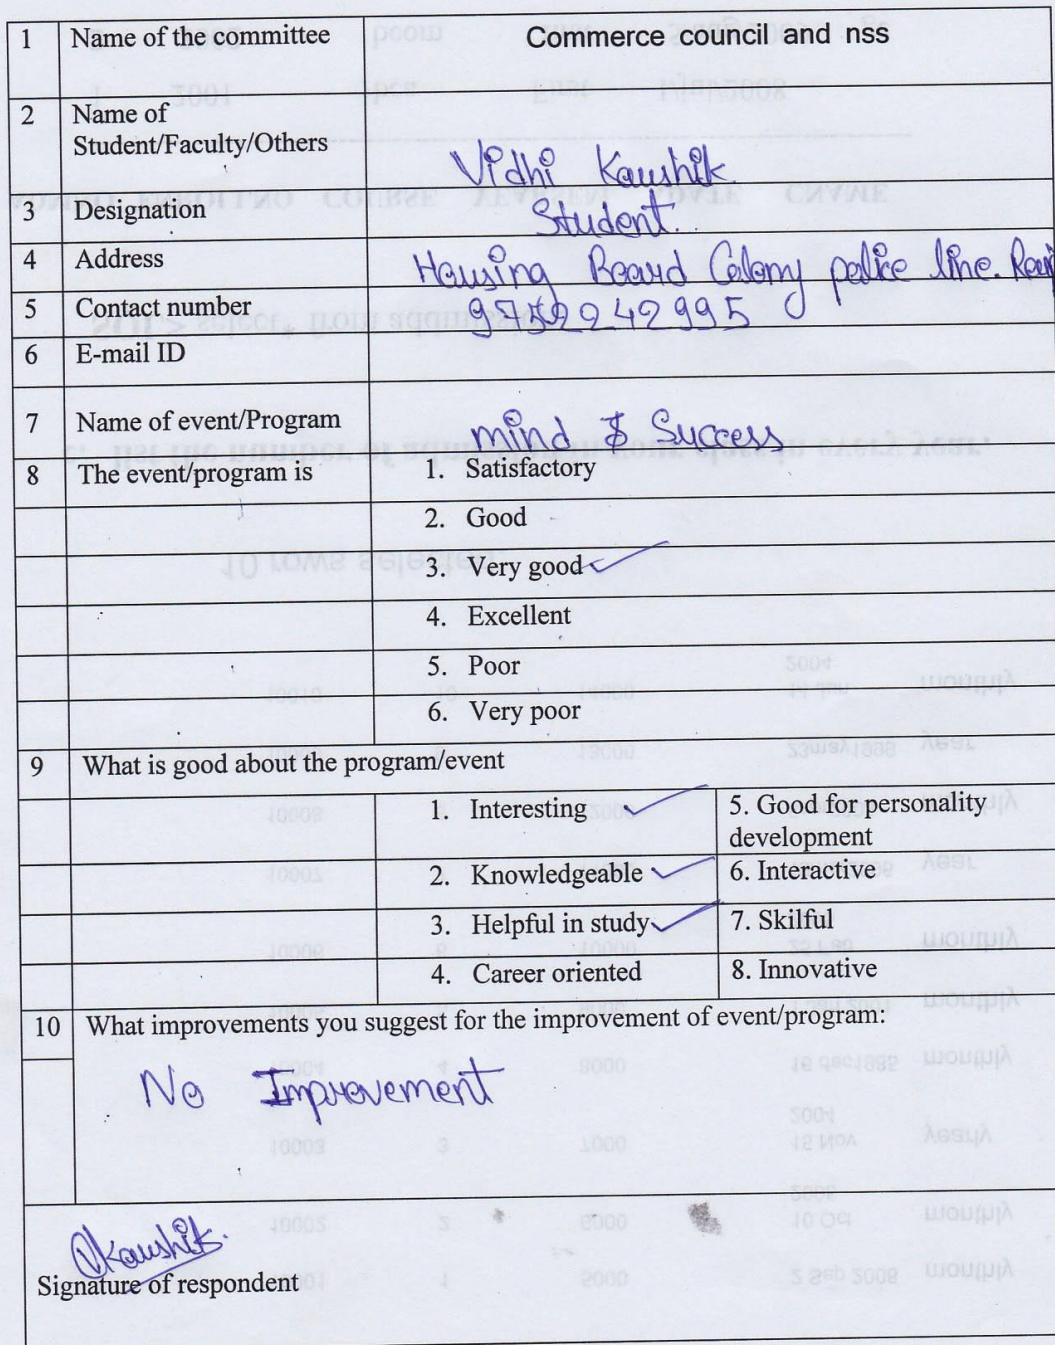 1 Name of the committee Commerce council and nss
2 Name of
Student/Faculty/Others Vidhi Kaushik
3 Designation Student.
4 Address Housing Board Colony police line.
5 Contact number
6 E-mail ID
7 Name of event/Program mind & Success
8 The event/program is 1. Satisfactory
2. Good
3. Very good ✓
4. Excellent
5. Poor
6. Very poor
9 What is good about the program/event
1. Interesting ✓ 5. Good for personality
development
2. Knowledgeable ✓ 6. Interactive
3. Helpful in study ✓ 7. Skilful
4. Career oriented 8. Innovative
10 What improvements you suggest for the improvement of event/program:
No Improvement
VKaushik.
Signature of respondent